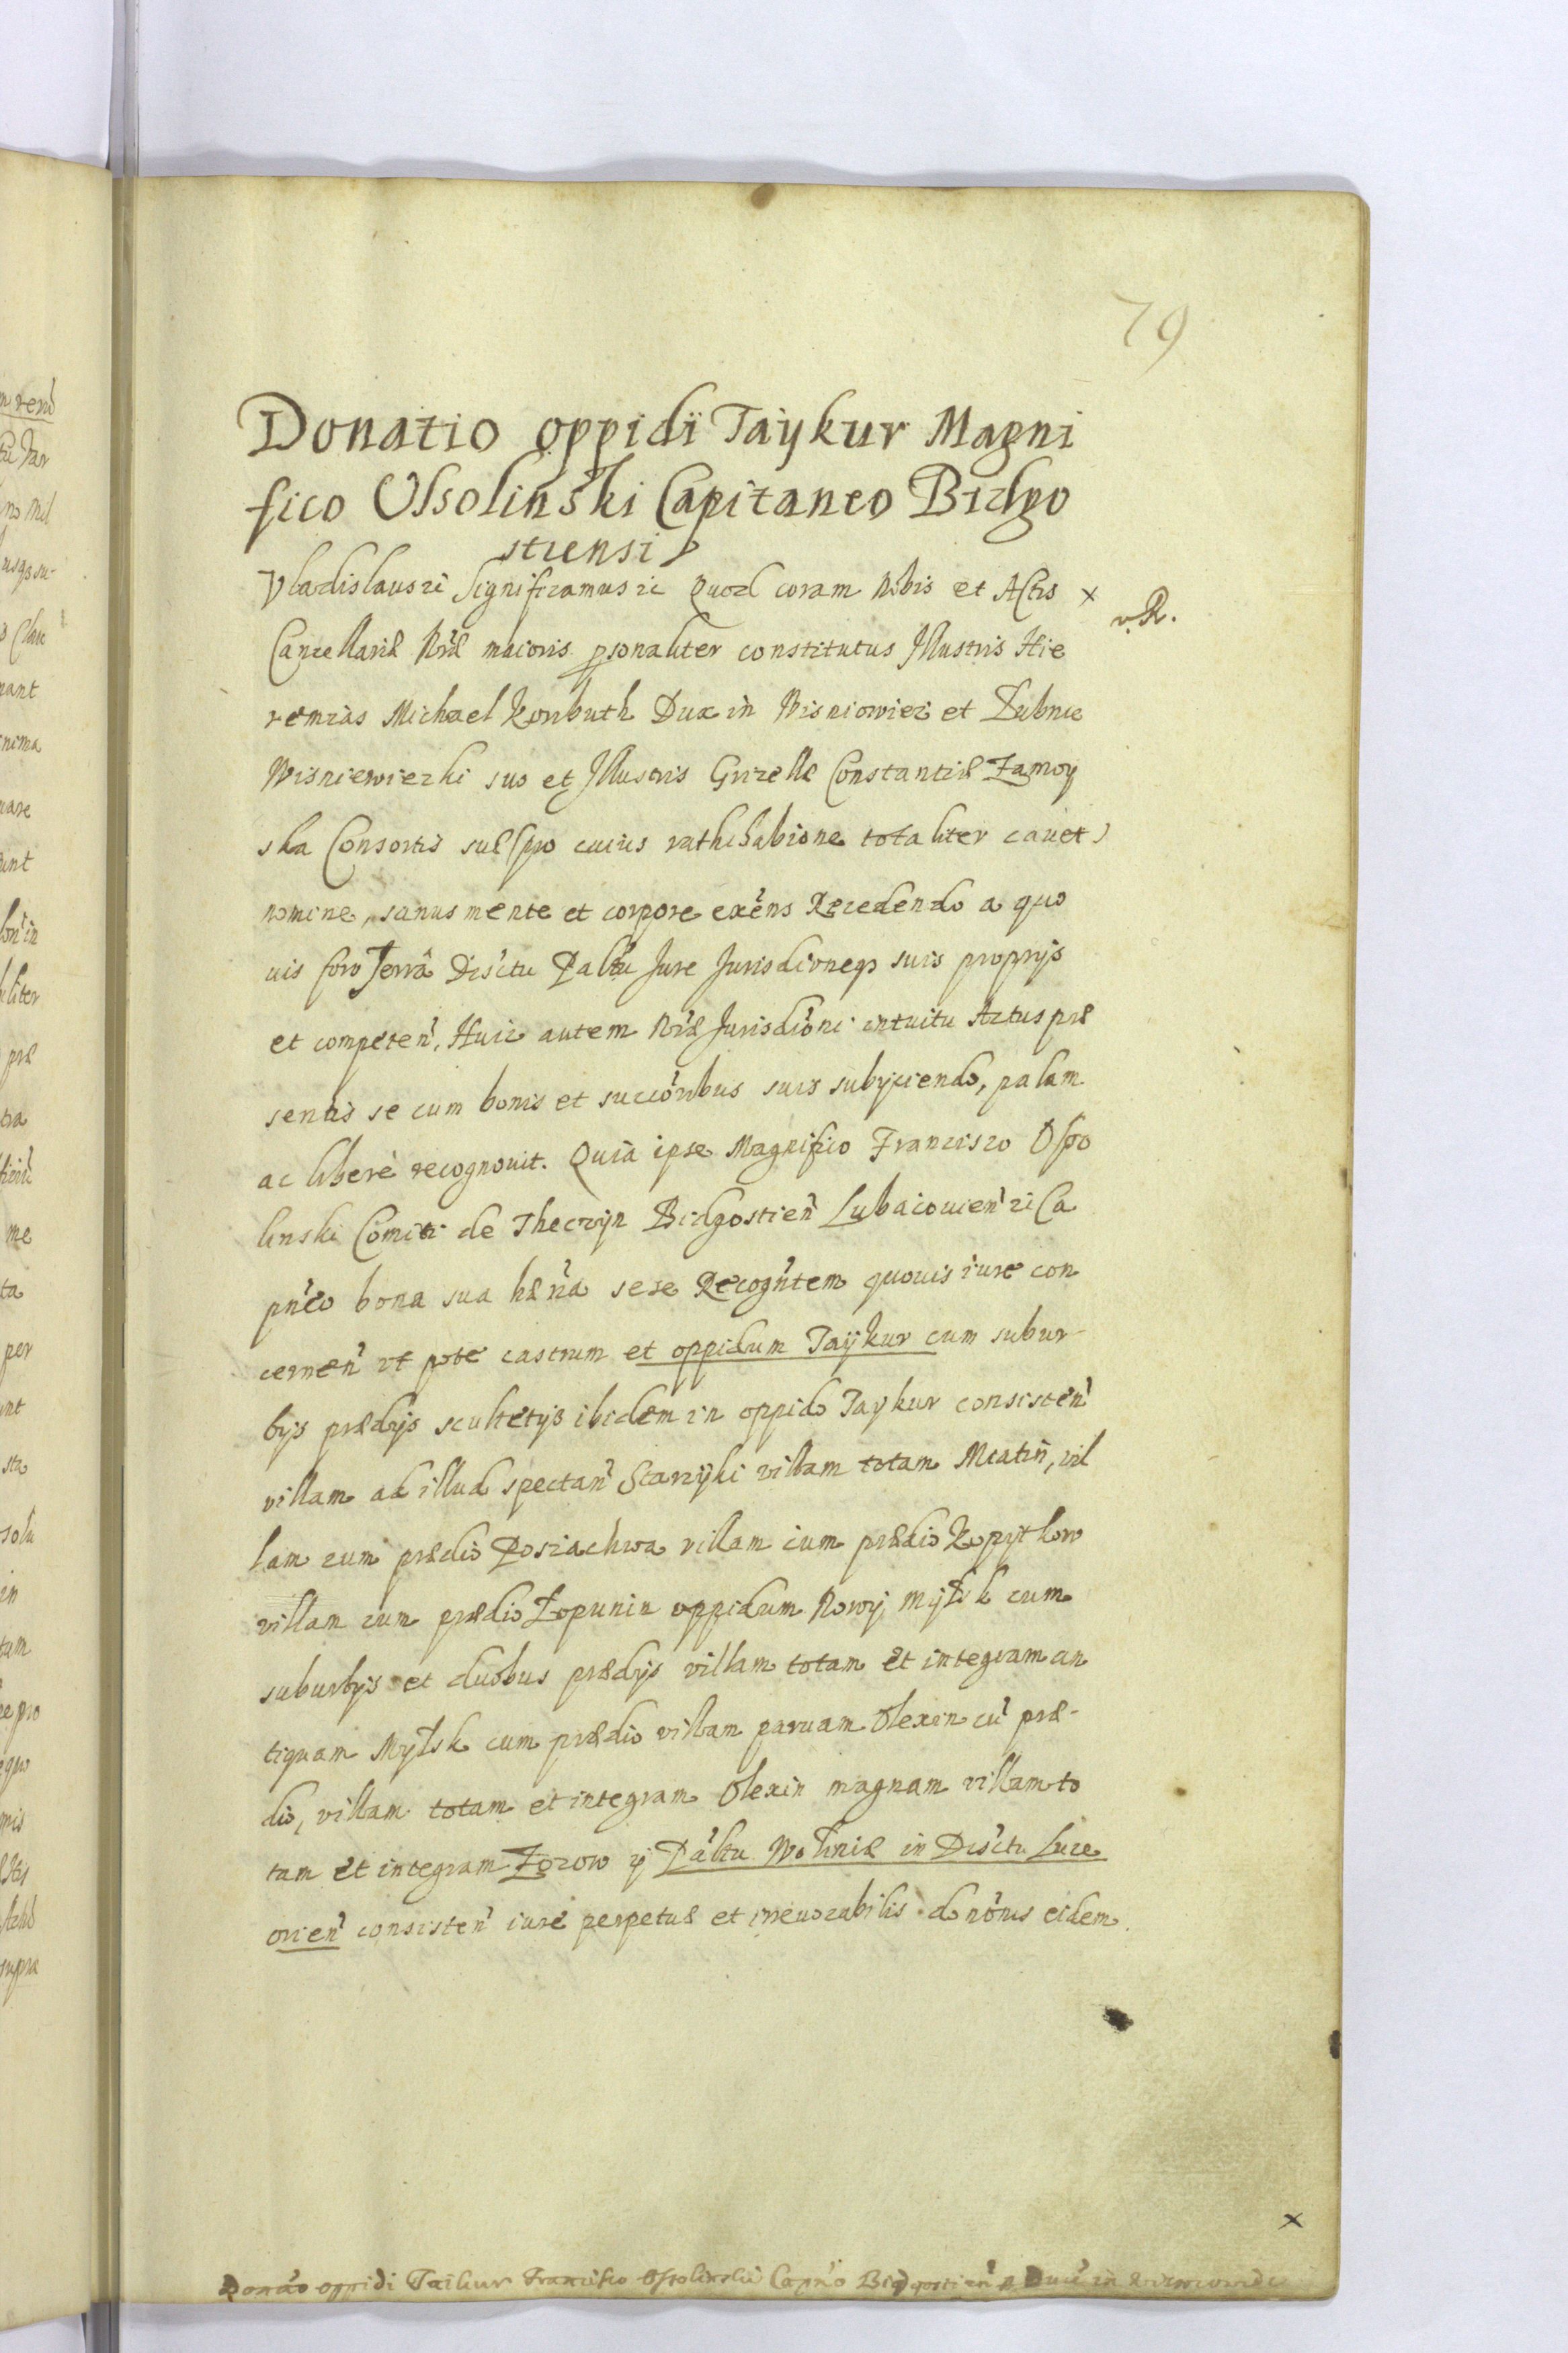 79
Donatio oppidi Taÿkur Magni
fico Ossolinski Capitaneo Bidgo
stiensi
Vladislaus ꝛc Significamus ꝛc Quod coram Nobis et Actis x
v. R.
Cancellariæ Nr̃æ maioris psonaliter constitutus Illustris Hie
remias Michael Koributh Dux in Wisniowiec et Lubnie
Wisniewiezki suo et Illustris Grizellæ Constantiæ Zamoy
ska Consortis suæ (pro cuius rathihabione totaliter cauet)
nomine, sanus mente et corpore exe͂ns Recedendo a quo
uis foro Terrâ Disctu Paltu Jure Jurisdioneqꝫ suis proprijs
et competen̉, Huic autem Nr̃æ Jurisdioni intuitu Actus præ
sentis se cum bonis et succoribus suis subijciendo, palam
ac liberè recognouit. Quia ipse Magnifico Francisco Osso
linski Comiti de Theczyn Bidgostien̉ Lubaczouien̉ ꝛc Ca
pn̉eo bona sua hæ̉na sese Recogn̉tem quouis iure con
cernen̉ ut pote castrum et oppidum Taijkur cum subur-
bijs prædijs scultetijs ibidem in oppido Taykur consisten̉
villam ad illud spectan̉ Starzÿki villam totam Miatin, vil
lam cum prædio Posiachwa villam cum prædio Kopijtkow
villam cum prædio Zopunin oppidum Nowy Mylsk cum
suburbijs et duobus prædijs villam totam et integram an
tiquam Mylsk cum prædio villam paruam Olexin cu̇ præ-
dio, villam totam et integram Olexin magnam villam to
tam et integram Zozow ij Paltu Woliniæ in Disctu Luce
orien̉ consisten̉ iure perpetuæ et irreuocabilis dononis eidem
x
Donao oppidi Taikur Francisco Ossolinskii Capn̉o Bidgostien̉ a Duce in